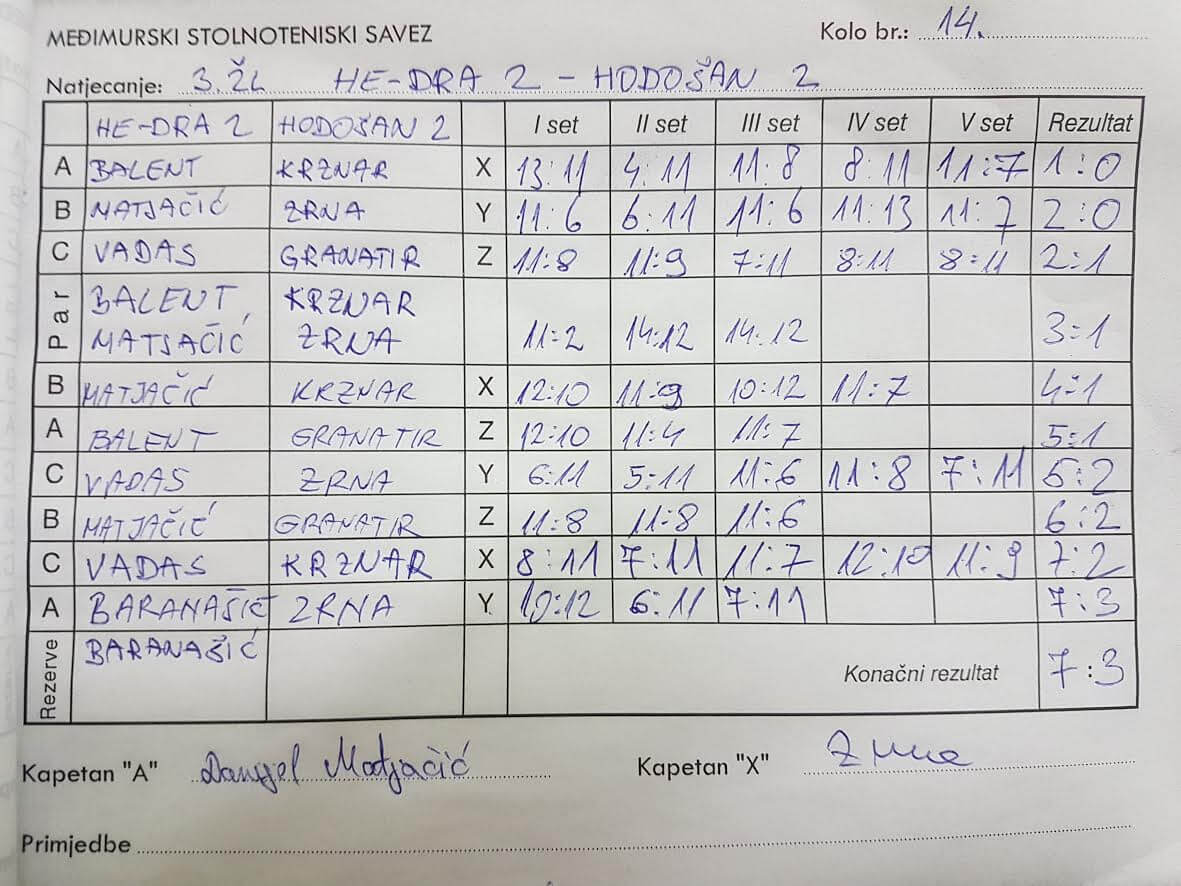 MEĐIMURSKI STOLNOTENISKI SAVEZ Kolo br.: 14.
Natjecanje: 3.ŽL HE-DRA 2 - HODOŠAN 2
HE-DRA 2 HODOŠAN 2 I set II set III set IV set V set Rezultat
A BALENT KRZNAR X 13:11 4:11 11:8 8:11 11:7 1:0
B MATJAČIĆ ZRNA Y 11:6 6:11 11:6 11:13 11:7 2:0
C VADAS GRANATIR Z 11:8 11:9 7:11 8:11 8:11 2:1
Par BALENT, KRZNAR
MATJAČIĆ ZRNA 11:2 14:12 14:12 3:1
B MATJAČIĆ KRZNAR X 12:10 11:9 10:12 11:7 4:1
A BALENT GRANATIR Z 12:10 11:4 11:7 5:1
C VADAS ZRNA Y 6:11 5:11 11:6 11:8 7:11 5:2
B MATJAČIĆ GRANATIR Z 11:8 11:8 11:6 6:2
C VADAS KRZNAR X 8:11 7:11 11:7 12:10 11:9 7:2
A BARANAŠIĆ ZRNA Y 10:12 6:11 7:11 7:3
Rezerve BARANAŠIĆ Konačni rezultat 7:3
Kapetan "A" Danijel Matjačić Kapetan "X" Zrna
Primjedbe